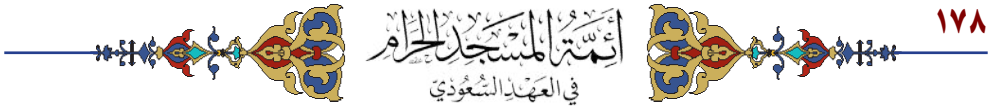 ١٧٨
أئمة المسجد الحرام
في العهد السعودي